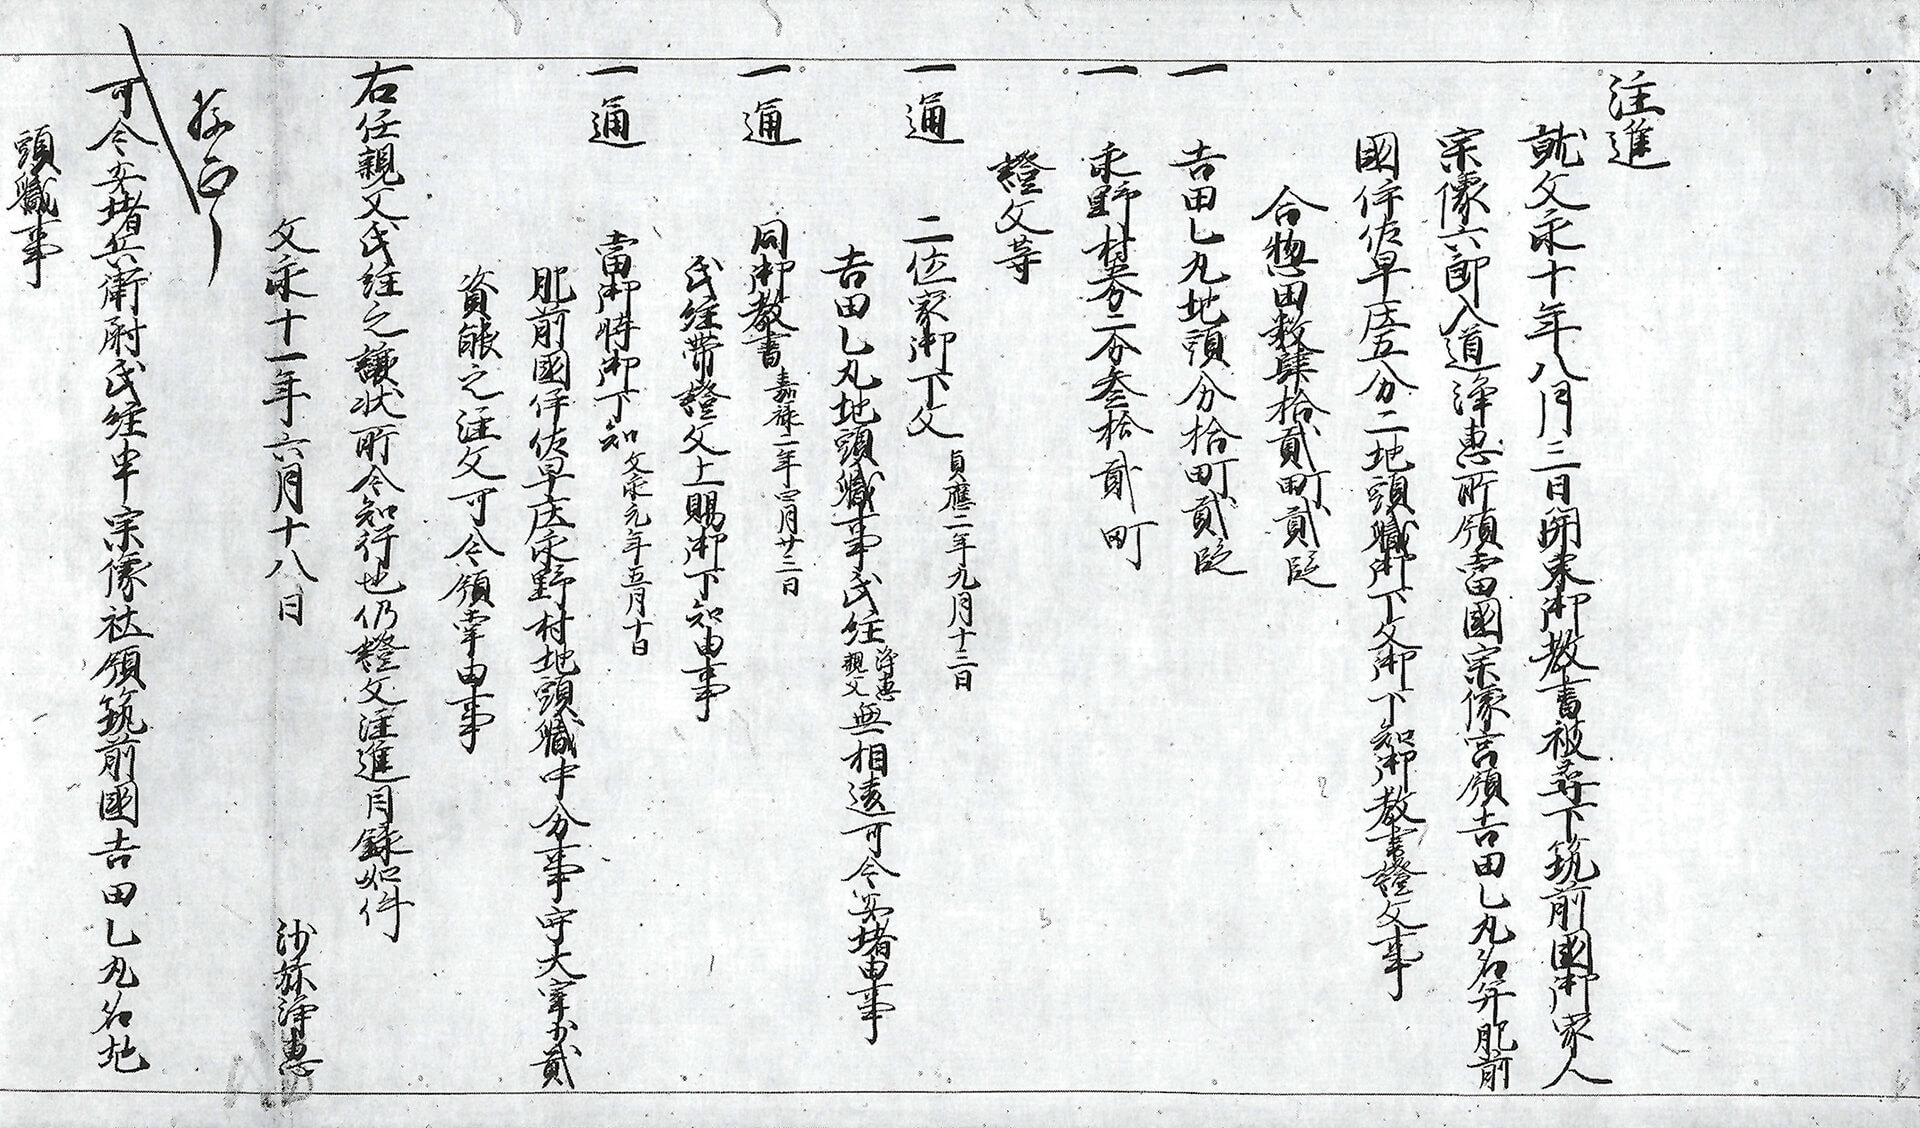 注進
就文永十年八月三日関東御教書被尋下筑前國御家人
宗像六郎入道浄恵所領當國宗像宮領吉田乙丸名并肥前
國伊佐早庄五分二地頭職御下文御下知御教書證文事
合惣田数肆拾貳町貳段
一 吉田乙丸地頭分拾町貳段
一 永野村五分二分叁拾貳町
證文等
一通 二位家御下文 貞應二年九月十三日
吉田乙丸地頭職事氏経 浄恵親父 無相違可令安堵由事
一通 同御教書 嘉禄二年四月廿三日
氏経帯證文上賜御下知由事
一通 當御時御下知 文永元年五月十日
肥前國伊佐早庄永野村地頭職中分事守大宰少貳
資能之注文可令領掌由事
右任親父氏経之譲状所令知行也仍證文注進目録如件
文永十一年六月十八日 沙弥浄恵
可令安堵兵衛尉氏経申宗像社領筑前國吉田乙丸名地
頭職事